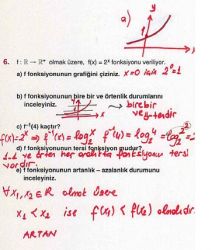 a)
y
x
6. f : R → R⁺ olmak üzere, f(x) = 2ˣ fonksiyonu veriliyor.
a) f fonksiyonunun grafiğini çiziniz. x=0 için 2⁰=1
b) f fonksiyonunun bire bir ve örtenlik durumlarını
inceleyiniz. → birebir
ve örtendir
c) f⁻¹(4) kaçtır?
f(x)=2ˣ ⇒ f⁻¹(x)=log₂x f⁻¹(4)=log₂4=log₂2²
d) f fonksiyonunun tersi fonksiyon mudur?
1-1 ve örten her fonksiyonun tersi
vardır.
e) f fonksiyonunun artanlık – azalanlık durumunu
inceleyiniz.
∀x₁,x₂∈R olmak üzere
x₁ < x₂ ise f(x₁) < f(x₂) olmalıdır.
ARTAN